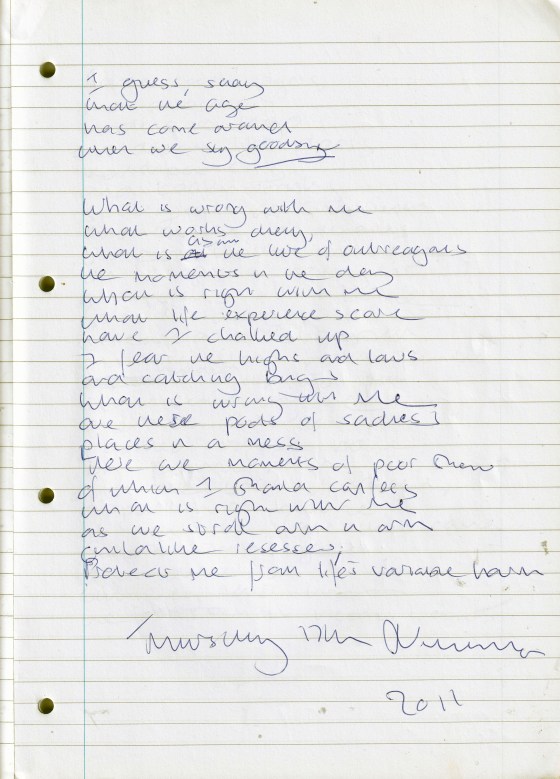 I guess, sadly
that the age
has come around
when we say goodbye
What is wrong with me
what works okay,
what is as am the live of
the moments in the day
What is right with me
what life experience score
have I chalked up
I fear the highs and lows
and catching bugs
What is wrong with me
are these pools of sadness
places in a mess
There are moments of poor
of which I should confess
What is right with me
as we stroll arm in arm
Protects me from life's variable harm
Thursday 17th November
2011